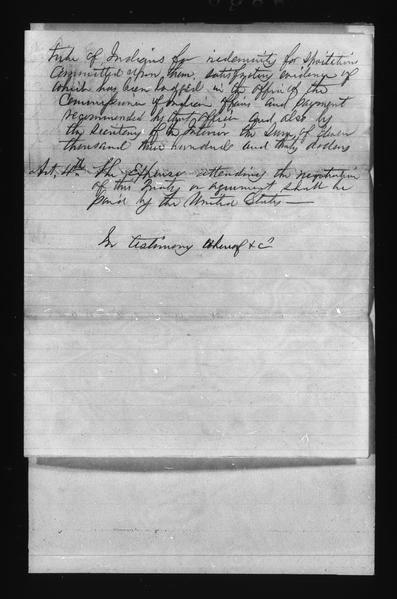 tribe of Indians for indemnity for spoliation
committed upon them, satisfactory evidence of
which has been lodged in the office of the
Commissioner of Indian affairs and payment
recommended by that officer and also by
the Secretary of the Interior the sum of
thousand nine hundred and thirty dollars
Art, 4th. The Expense attending the negotiation
of this Treaty or agreement shall be
paid by the United States—
In testimony whereof &c